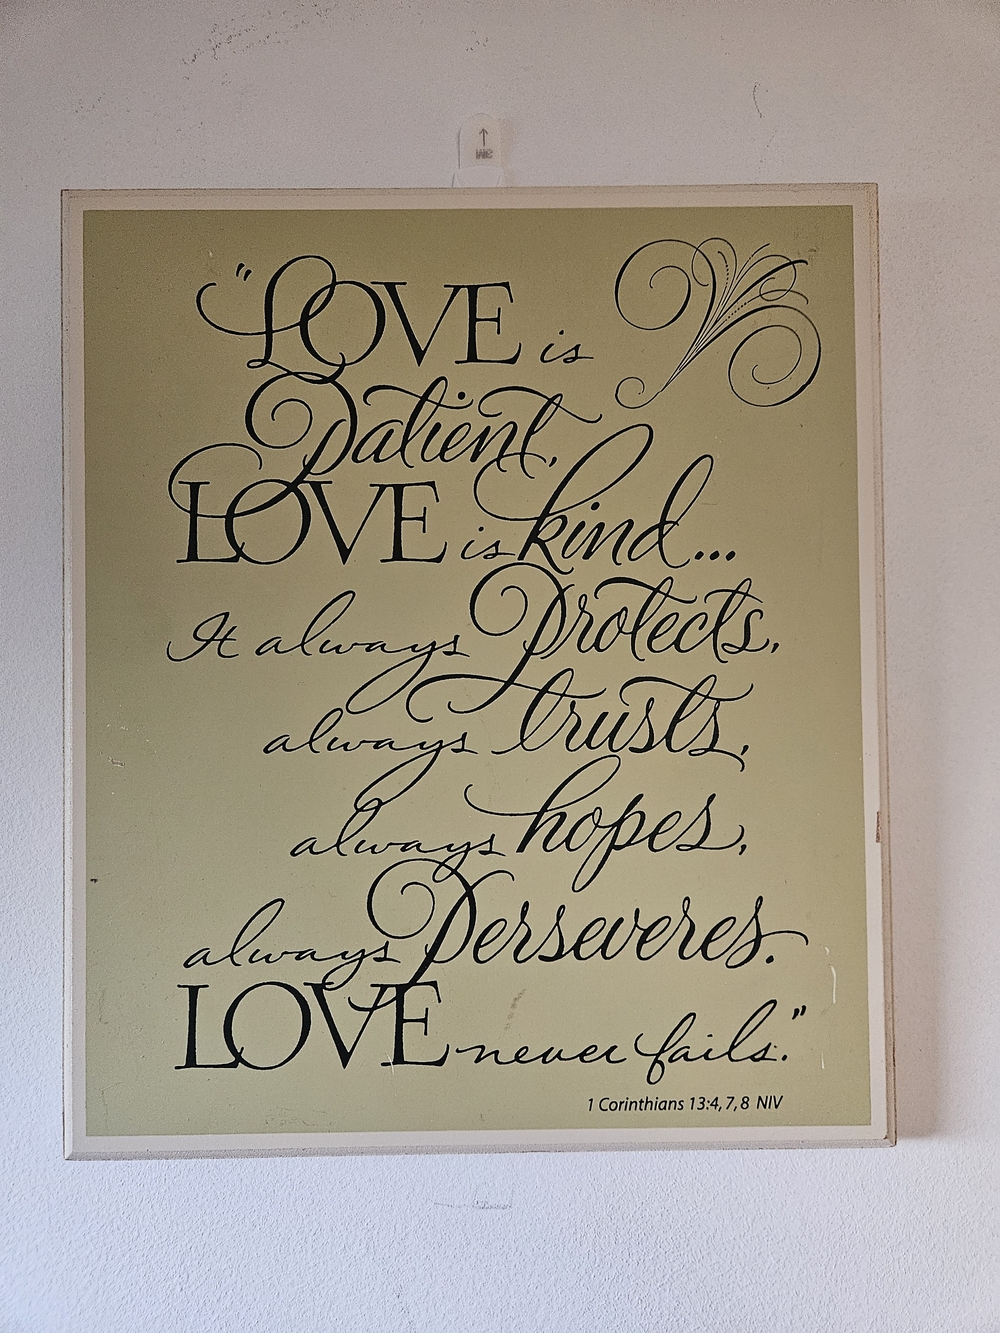 3M
"LOVE is
Patient,
LOVE is kind...
It always Protects,
always trusts,
always hopes,
always Perseveres.
LOVE never fails."
1 Corinthians 13:4, 7, 8 NIV